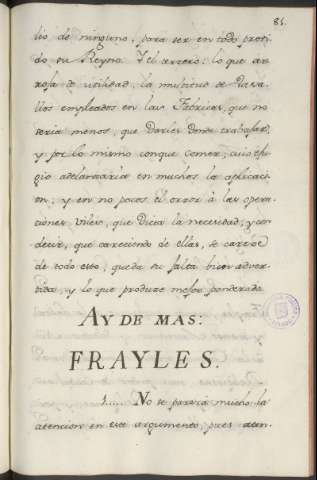 81.
lio de ninguno, para ser en todo proti-
do su Reyno. Y el acervo: lo que ar-
roja de utilidad, la multitud de Vasa-
llos empleados en las Fabricas, que no
seria menos, que Darles donde trabajar,
y por lo mismo conque comer, cuio
gio adelantaria en muchos la aplicaci-
on, y en no pocos el orror à las opera-
ciones viles, que Dicta la necesidad, y con
decir, que careciendo de ellas, se carece
de todo esto, queda su falta bien adver-
tida, y lo que produce mejor ponderado.
AY DE MAS:
FRAYLES.
1..... No se parará mucho la
atencion en este argumento, pues aten-